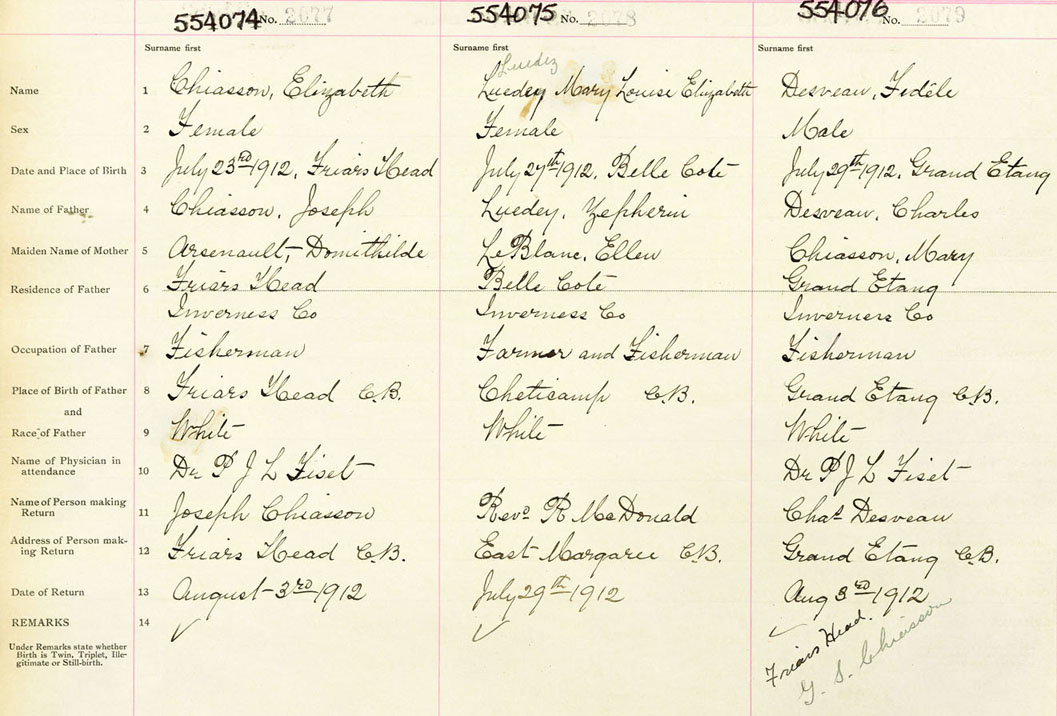 554074 No. 2077 554075 No. 2078 554076 No. 2079
Surname first Surname first Surname first
Luedey
Name 1 Chiasson, Elizabeth Luedey Mary Louise Elizabeth Desveau, Fidéle
Sex 2 Female Female Male
Date and Place of Birth 3 July 23rd 1912, Friars Head July 27th 1912, Belle Cote July 29th 1912, Grand Etang
Name of Father 4 Chiasson, Joseph Luedey, Zepherin Desveau, Charles
Maiden Name of Mother 5 Arsenault, Domithilde LeBlanc, Ellen Chiasson, Mary
Residence of Father 6 Friars Head Belle Cote Grand Etang
Inverness Co Inverness Co Inverness Co
Occupation of Father 7 Fisherman Farmer and Fisherman Fisherman
Place of Birth of Father 8 Friars Head C.B. Cheticamp C.B. Grand Etang C.B.
and
Race of Father 9 White White White
Name of Physician in
attendance 10 Dr P J L Fiset Dr P J L Fiset
Name of Person making
Return 11 Joseph Chiasson Revd R McDonald Chas Desveau
Address of Person mak-
ing Return 12 Friars Head C.B. East Margaree C.B. Grand Etang C.B.
Date of Return 13 August 3rd 1912 July 29th 1912 Aug 3rd 1912
REMARKS 14
Under Remarks state whether
Birth is Twin, Triplet, Ille-
gitimate or Still-birth.
Friars Head.
G. S. Chiasson